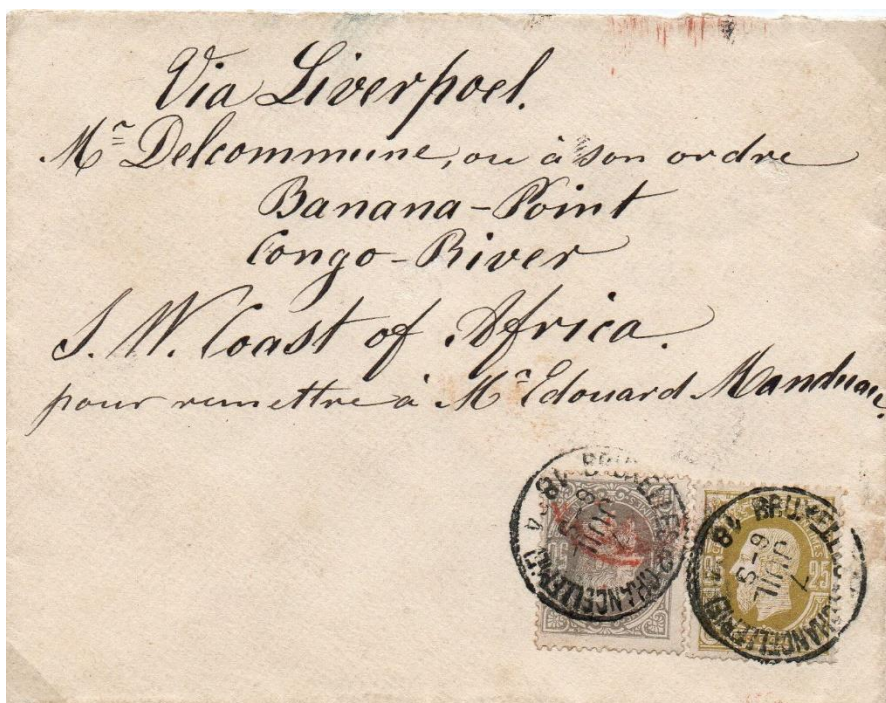 Via Liverpoel.
Mr Delcommune, ou à son ordre
Banana-Point
Congo-River
S. W. Coast of Africa.
pour remettre à Mr Edouard Manduau,
BRUXELLES (CHANCELLERIE)
6-S
JUIL
18 4
50
BRUXELLES (CHANCELLERIE)
6-S
JUIL
7
18 4
25